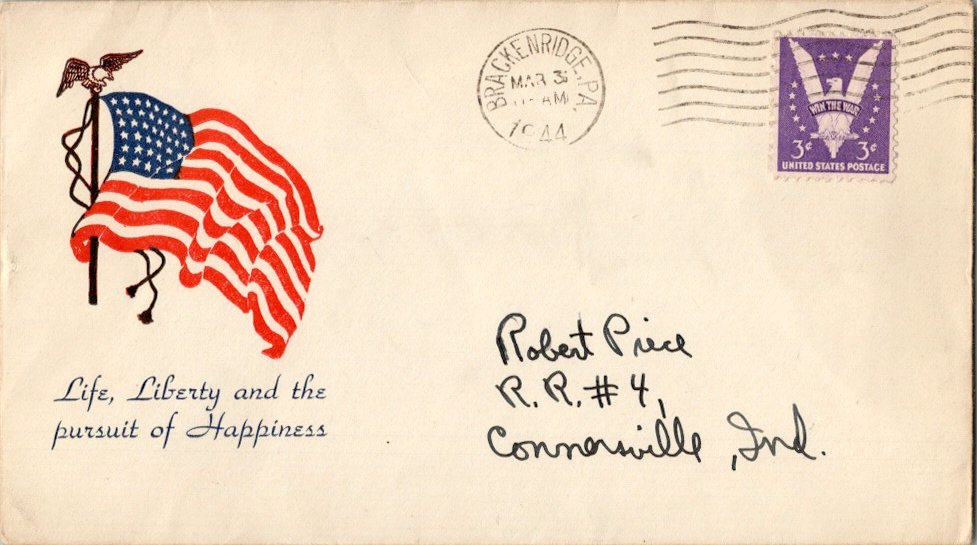 BRACKENRIDGE, PA.
MAR 3
AM
1944
WIN THE WAR
3¢ 3¢
UNITED STATES POSTAGE
Life, Liberty and the
pursuit of Happiness
Robert Piece
R. R. #4,
Connersville, Ind.